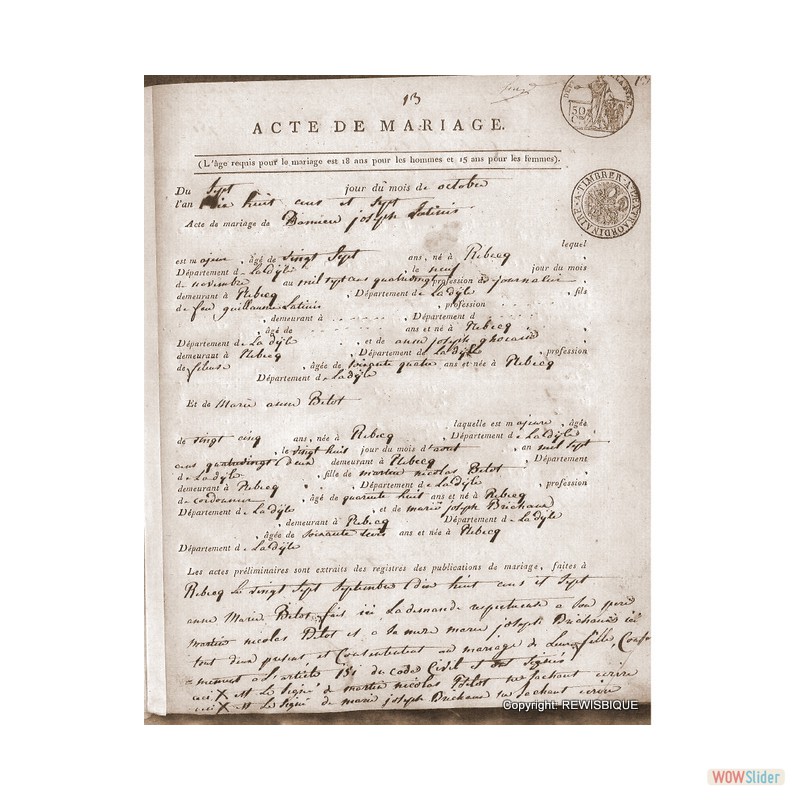 13
ACTE DE MARIAGE.
(L'âge requis pour le mariage est 18 ans pour les hommes et 15 ans pour les femmes).
Du Sept jour du mois de octobre
l'an huit cens et Sept
Acte de mariage de joseph Latinis
lequel
est majeur, âgé de vingt Sept ans, né à Rebecq
Département de La dÿle, le neuf jour du mois
de novembre au mil sept cens quatrevingt profession de journalier
demeurant à Rebecq, Département de La dÿle, fils
de feu guillaume Latinis, profession
, demeurant à, Département d
, âgé de ans et né à Rebecq,
Département de La dÿle, et de anne joseph
demeurant à Rebecq, Département de La dÿle, profession
de fileuse, âgée de soixante quatre ans et née à Rebecq
Département de La dÿle
Et de Marie anne Bitot
laquelle est majeure, âgée
de vingt cinq ans, née à Rebecq, Département de La dÿle
, le vingt huit jour du mois d'aout an mil sept
cens quatrevingt deux demeurant à Rebecq, Département
de La dÿle, fille de martin nicolas Bitot
demeurant à Rebecq, Département de La dÿle, profession
de cordonnier, âgé de quarante huit ans et né à Rebecq
Département de La dÿle, et de marie joseph Brichaux
, demeurant à Rebecq Département de La dÿle
, âgée de soixante ans et née à Rebecq
Département de La dÿle
Les actes préliminaires sont extraits des registres des publications de mariage, faites à
Rebecq Le vingt Sept Septembre dix huit cens et Sept
anne Marie Bitot fait ici La demande respectueuse a Son pere
martin nicolas Bitot et a Sa mere marie joseph Brichaux ici
tout deux present, et Consentent au mariage de Leur fille,
a L'article 151 du code Civil et ont Signés
ceci X est Le Signe de martin nicolas Bitot ne Sachant écrire
ceci X est Le Signe de marie joseph Brichaux ne Sachant écrire
50
A TIMBRER A L'EXTRAORDINAIRE
Copyright: REWISBIQUE
WOWSlider